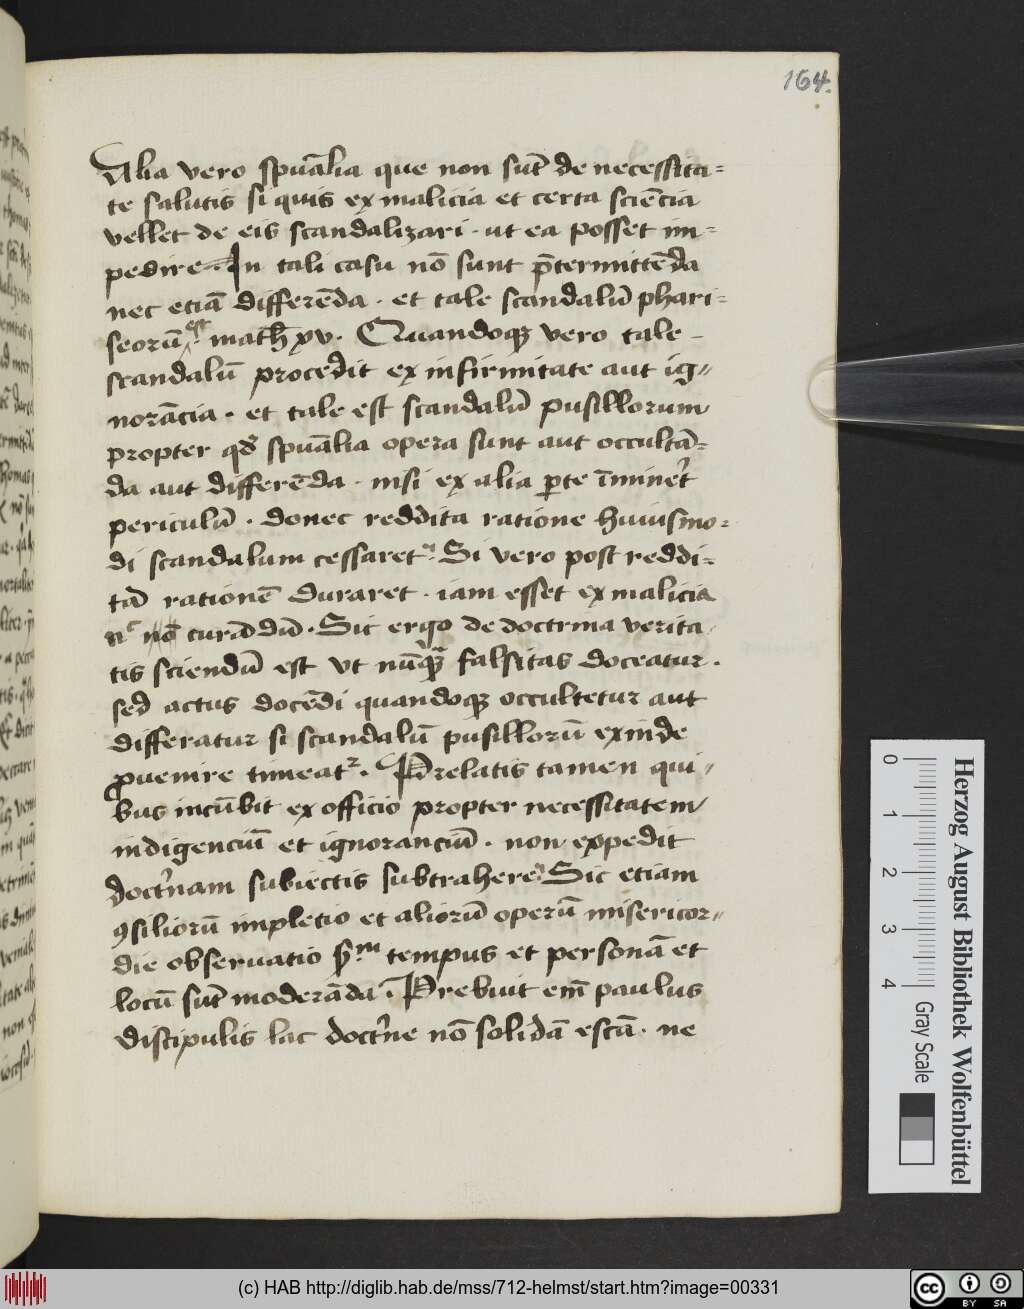 164.
Alia vero spũalia que non sũt de necessita=
te salutis si quis ex malicia et certa sciẽcia
vellet de eis scandalizari · ut ea posset im=
pedire · In tali casu nõ sunt p̃termittẽda
nec etiã differẽda · et tale scandalũ phari=
seorũ est math xv · Quandoqꝫ vero tale -
scandalũ procedit ex infirmitate aut ig=
norãcia · et tale est scandalũ pusillorum
propter qd̾ spũalia opera sunt aut occultã=
da aut differẽda · nisi ex alia ꝑte ĩmineret̾
periculũ · donec reddita ratione huiusmo=
di scandalum cessaret · Si vero post reddi=
tã rationẽ duraret · iam esset ex malicia
nõ curãdũ · Sic ergo de doctrina verita
tis sciendũ est ut nũqꝫ falsitas doceatur ·
sed actus docẽdi quandoqꝫ occultetur aut
differatur si scandalũ pusillorũ exinde
ꝓuenire timeatᷣ · Prelatis tamen qui=
bus incũbit ex officio propter necessitatem
indigenciũ et ignoranciũ · non expedit
doct̾nam subiectis subtrahere · Sic etiam
ꝯsiliorũ impletio et aliorũ operũ misericor=
die obseruatio s̾m tempus et personã et
locũ sũt moderãda · Prebuit em̃ paulus
discipulis lac doct̾ne nõ solidã escã · ne
0 1 2 3 4
Gray Scale
Herzog August Bibliothek Wolfenbüttel
(c) HAB http://diglib.hab.de/mss/712-helmst/start.htm?image=00331
cc BY SA